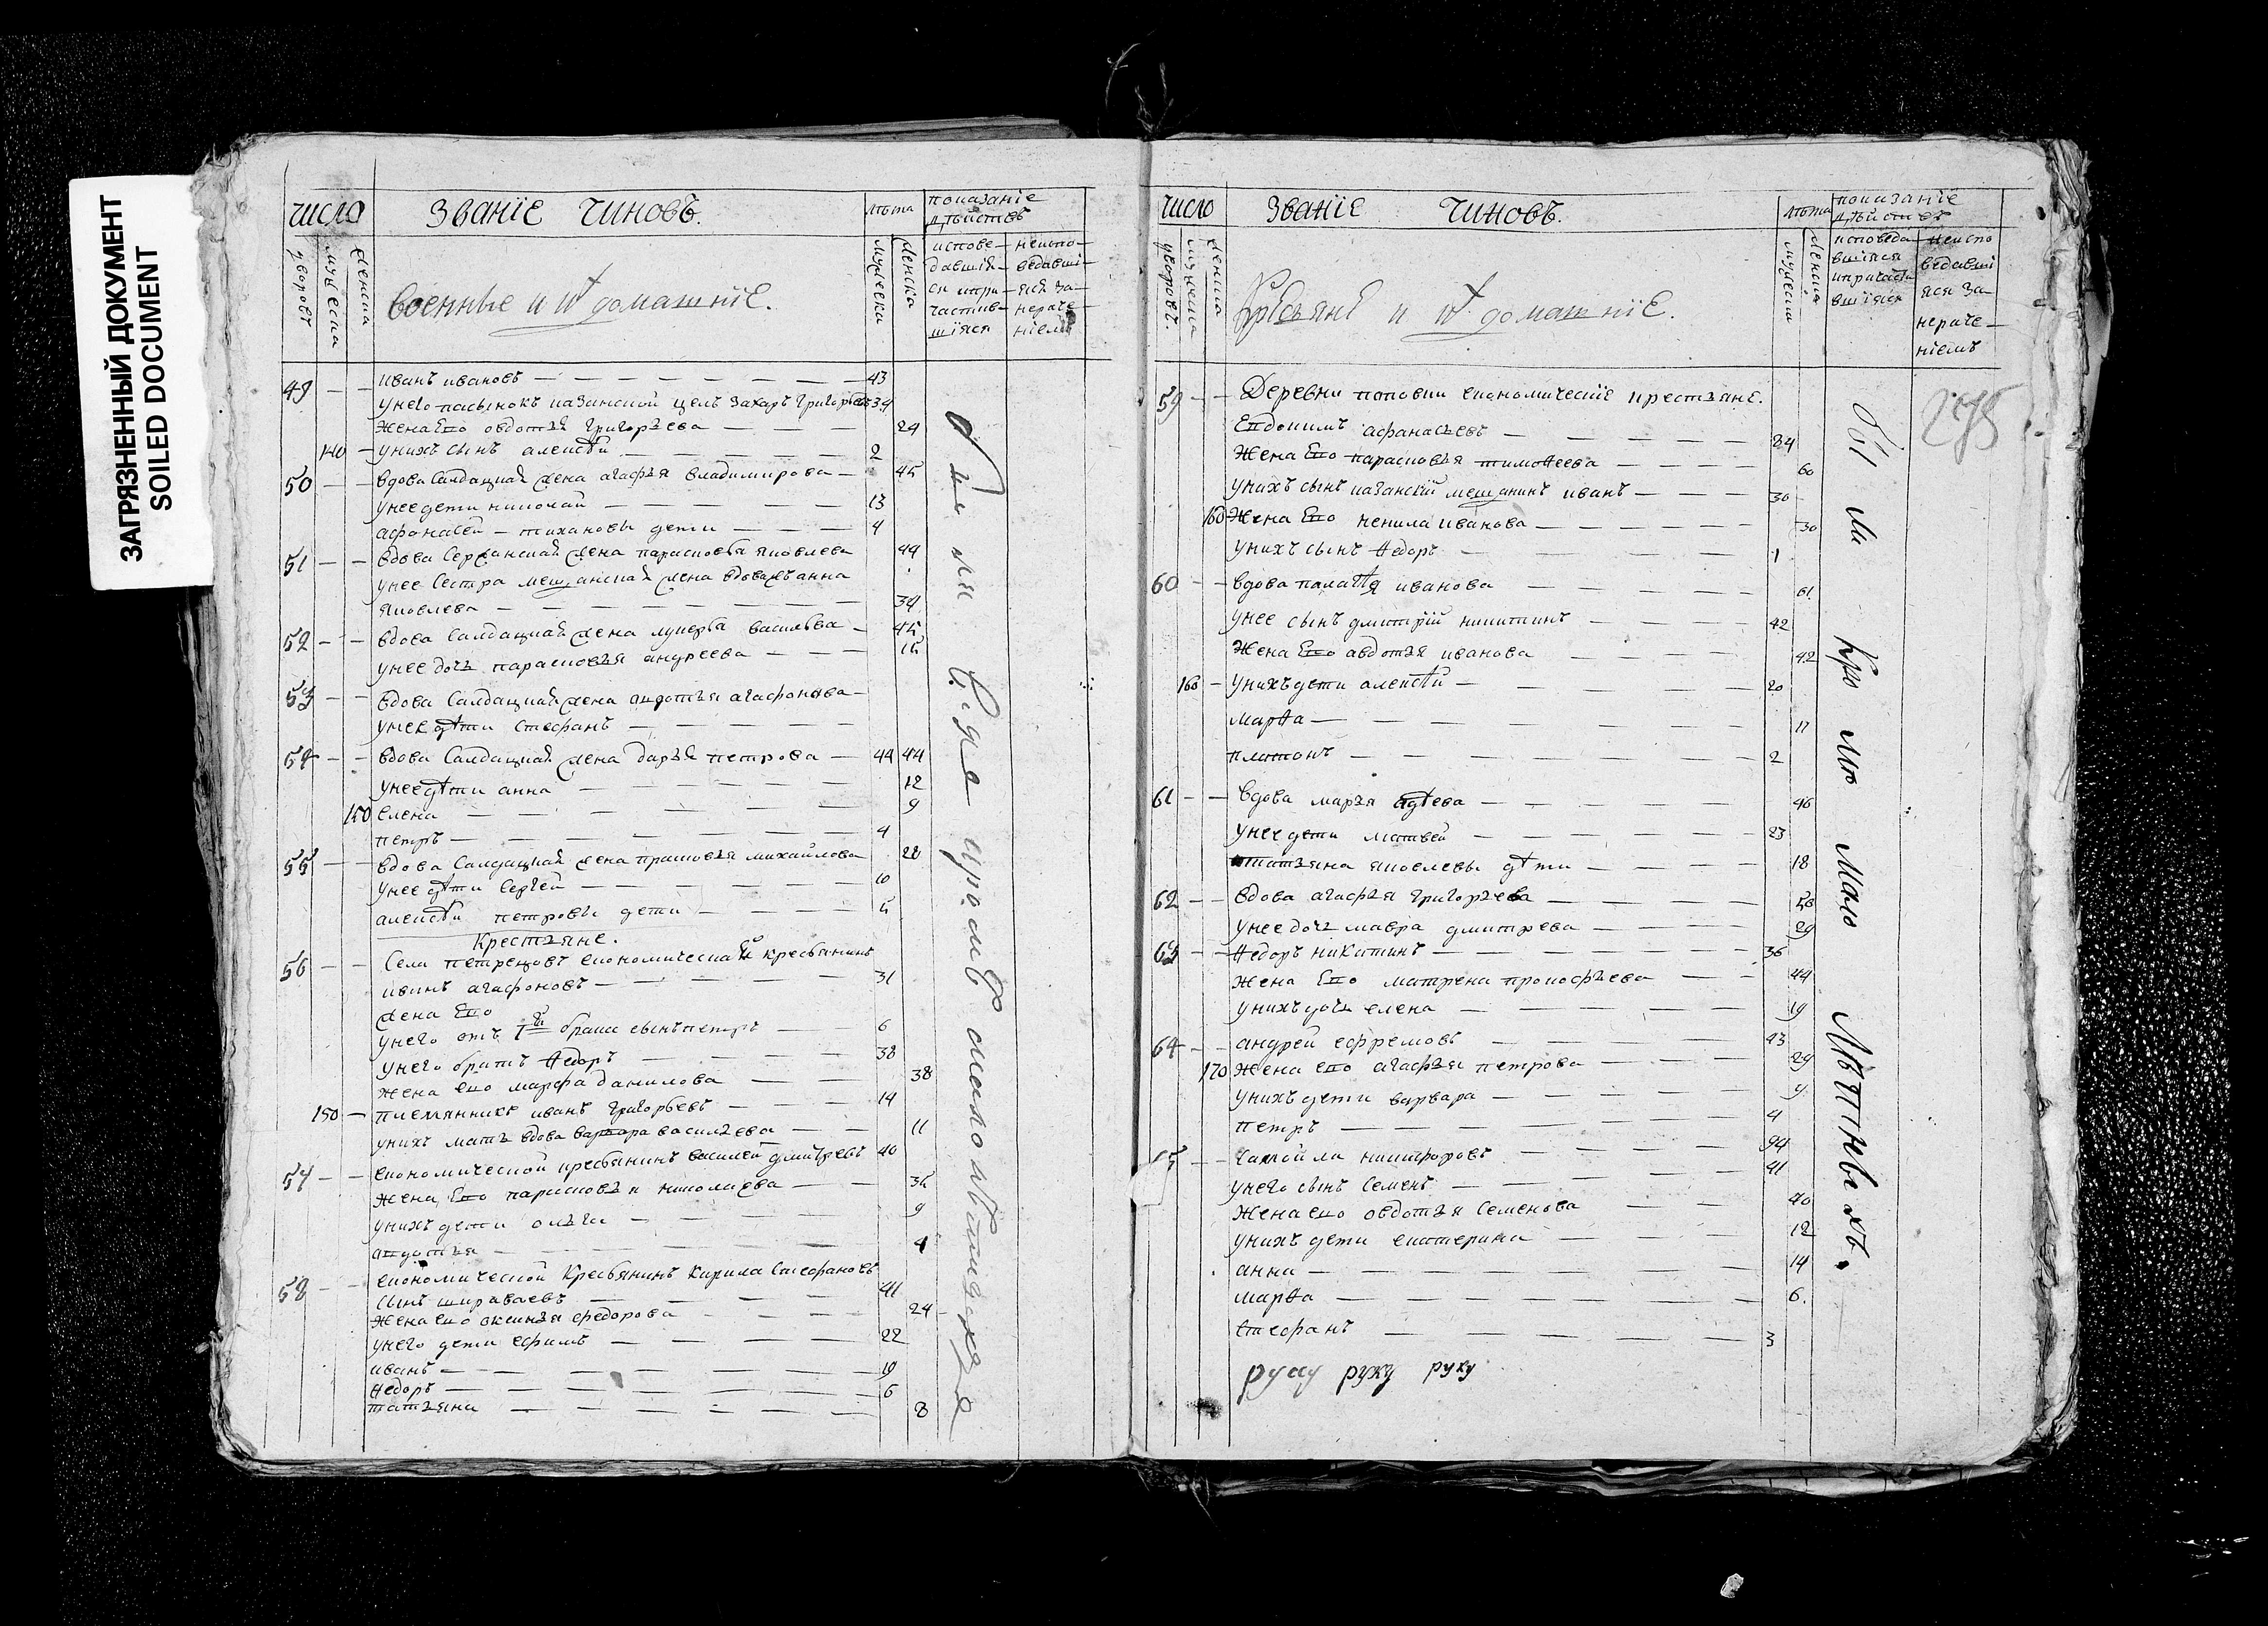 ЗАГРЯЗНЕННЫЙ ДОКУМЕНТ
SOILED DOCUMENT
число званїе чиновъ. лѣта показанїе дѣйствъ
дворовъ мужеска женска мужеска женска
испове- неиспо-
давшїя- ведавші-
ся и при- яся за-
частив- нераче-
шїяся нїемъ
военные и ихъ домашнїе.
49 иванъ ивановъ 43
унего пасынокъ казанской цехъ захаръ григорьевъ 39
жена ево овдотья григорьева 24
140 унихъ сынъ алексѣй 2
50 вдова салдацкая жена агафья владимирова 45
унее дети николай 13
афонасей тихановы дети 4
51 вдова сержанская жена парасковья яковлева 49
унее сестра мещанская жена вдова анна
яковлева 39
52 вдова салдацкая жена лукерья васильева 45
унее дочь парасковья андреева 15
53 вдова салдацкая жена авдотья агафонова
унее дѣти стефанъ
54 вдова салдацкая жена дарья петрова 44 44
унее дѣти анна 12
150 елена 9
петръ 4
55 вдова салдацкая жена прасковья михайлова 28
унее дѣти сергей 10
алексѣй петровы дети 5
крестьяне.
56 села петрецовъ економической кресьянинъ
иванъ агафоновъ 31
жена ево
унего отъ 1й брака сынъ петръ 6
унего братъ ѳедоръ 38
жена ево марфа данилова 38
150 племянникъ иванъ григорьевъ 14
унихъ мать вдова варвара васильева 11
57 економической кресьянинъ василей дмитревъ 40
жена ево парасковья николаева 35
унихъ дети ольга 9
авдотья 4
58 економической кресьянинъ кирила стефановъ 41
сынъ
жена ево аксинья федорова 24
унего дети ефимъ 22
иванъ 10
ѳедоръ 6
татьяна 8
были у исповеди кроме малолѣтных
число званїе чиновъ. лѣта показанїе дѣйствъ
дворовъ. мужеска женска мужеска женска
исповеда- неиспо
вшїяся ведавші
и причасти яся за-
вшїяся нераче-
нїемъ
кресьянѣ и ихъ домашнїе.
275
59 Деревни поповки економическіе крестьяне.
евдокимъ афанасьевъ 84
жена ево парасковья тимоѳеева 60
унихъ сынъ казанскїй мещанинъ иванъ 30
160 жена ево ненила иванова 30
унихъ сынъ ѳедоръ 1
60 вдова палагѣя иванова 61
унее сынъ дмитрїй никитинъ 42
жена ево авдотья иванова 42
160 унихъ дети алексѣй 20
марѳа 11
платонъ 2
61 вдова марья 46
унее дети матвей 23
татьяна яковлевы дѣти 18
62 вдова агафья григорьева 50
унее дочь мавра дмитрева 29
63 ѳедоръ никитинъ 36
жена ево матрена прокофьева 44
унихъ дочь елена 19
64 андрей ефремовъ 43
170 жена ево агафья петрова 29
унихъ дети варвара 9
петръ 4
65 самойла никифоровъ 94
унего сынъ семенъ 41
жена ево овдотья семенова 40
унихъ дети екатерина 12
анна 14
марѳа 6.
стефанъ 3
руку руку руку
были кро мѣ мало лѣтныхъ.